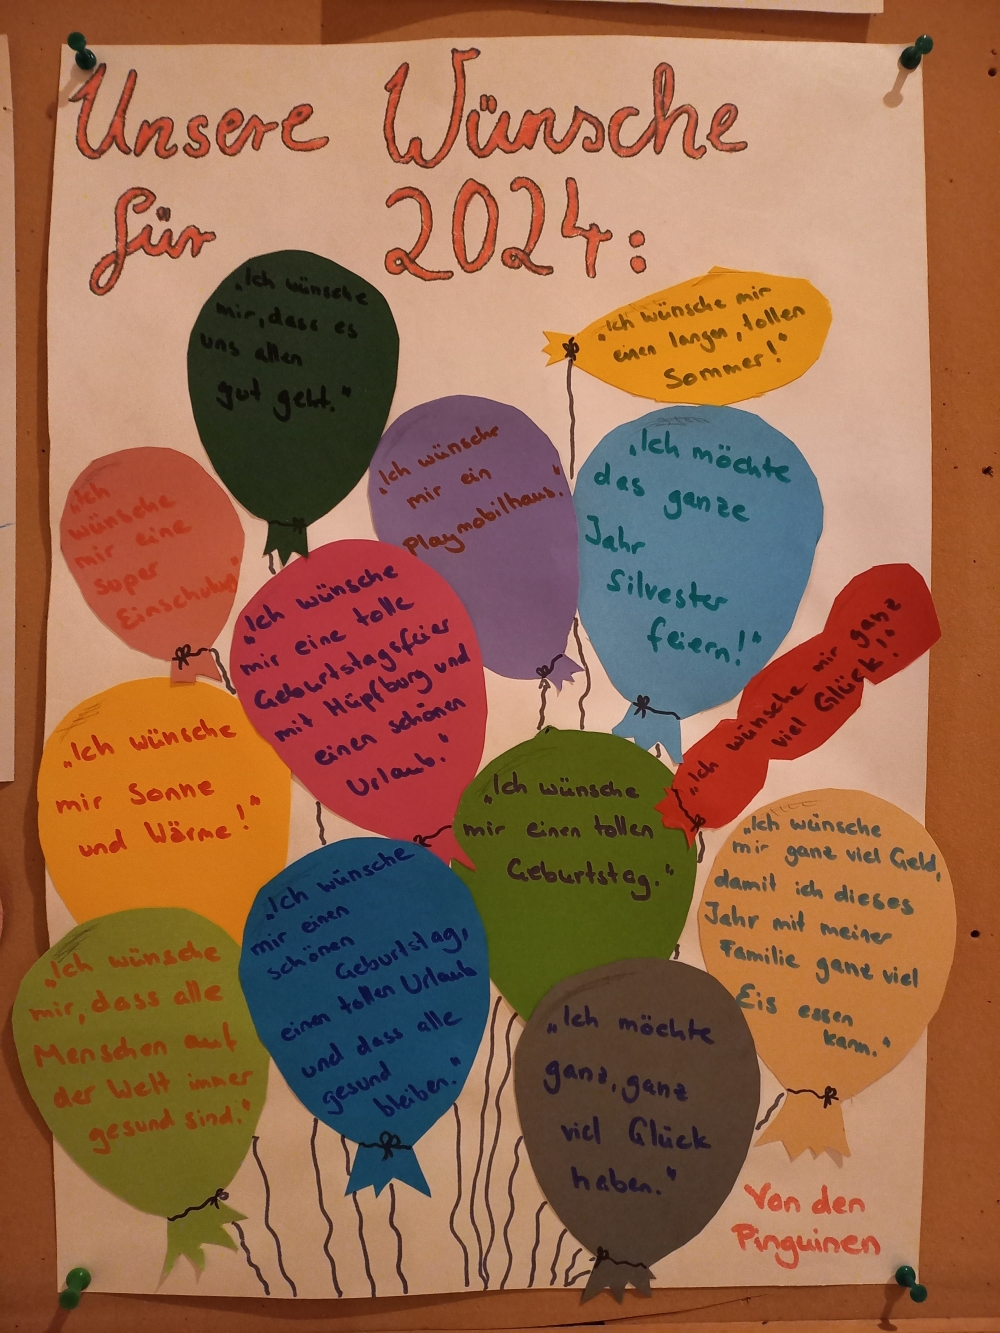 Unsere Wünsche
für 2024:
„Ich wünsche
mir, dass es
uns allen
gut geht."
„Ich wünsche mir
einen langen, tollen
Sommer!"
„Ich wünsche
mir ein
Playmobilhaus."
„Ich möchte
das ganze
Jahr
Silvester
feiern!"
„Ich
wünsche
mir eine
super
Einschulung"
„Ich wünsche
mir eine tolle
Geburtstagsfeier
mit Hüpfburg und
einen schönen
Urlaub."
„Ich wünsche mir ganz
viel Glück!"
„Ich wünsche
mir Sonne
und Wärme!"
„Ich wünsche
mir einen tollen
Geburtstag."
„Ich wünsche
mir ganz viel Geld,
damit ich dieses
Jahr mit meiner
Familie ganz viel
Eis essen
kann."
„Ich wünsche
mir einen
schönen
Geburtstag,
einen tollen Urlaub
und dass alle
gesund
bleiben."
„Ich wünsche
mir, dass alle
Menschen auf
der Welt immer
gesund sind."
„Ich möchte
ganz, ganz
viel Glück
haben."
Von den
Pinguinen